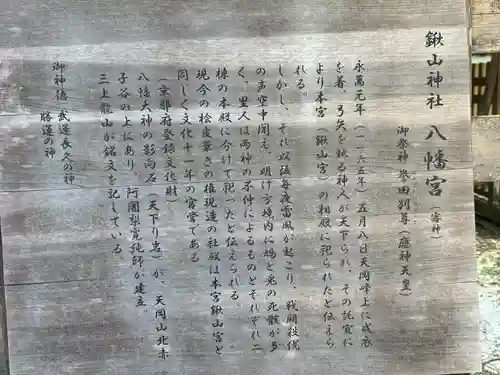 鍬山神社 八幡宮(二審神)
御祭神 誉田別尊(應神天皇)
永萬元年(一一六五年)五月八日天岡峰上に戎衣
を着、弓矢を執る神人が天下られ、その託宣に
より本宮(鍬山宮)の相殿に祀られたと伝えら
れる。
しかし、それ以後毎夜雷風が起こり、戦闘殺伐
の声空中聞え、明け方境内に鳩と兎の死骸が多
く、里人は両神の不仲によるものとそれぞれ二
棟の本殿に分けて祀ったと伝えられる。
現今の桧皮葺きの権現造の社殿は本宮鍬山宮と
同じく文化十一年の官営である
(京都府登録文化財)
八幡大神の影向石(天下り岩)が、天岡山北赤
子谷の上にあり、阿闍梨寛純師が建立。
三上龍山が銘文を記している。
御神徳 武運長久の神
勝運の神